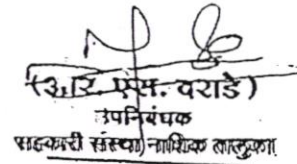 (आर. एस. वराडे)
उपनिबंधक
सहकारी संस्था, नाशिक तालुका.